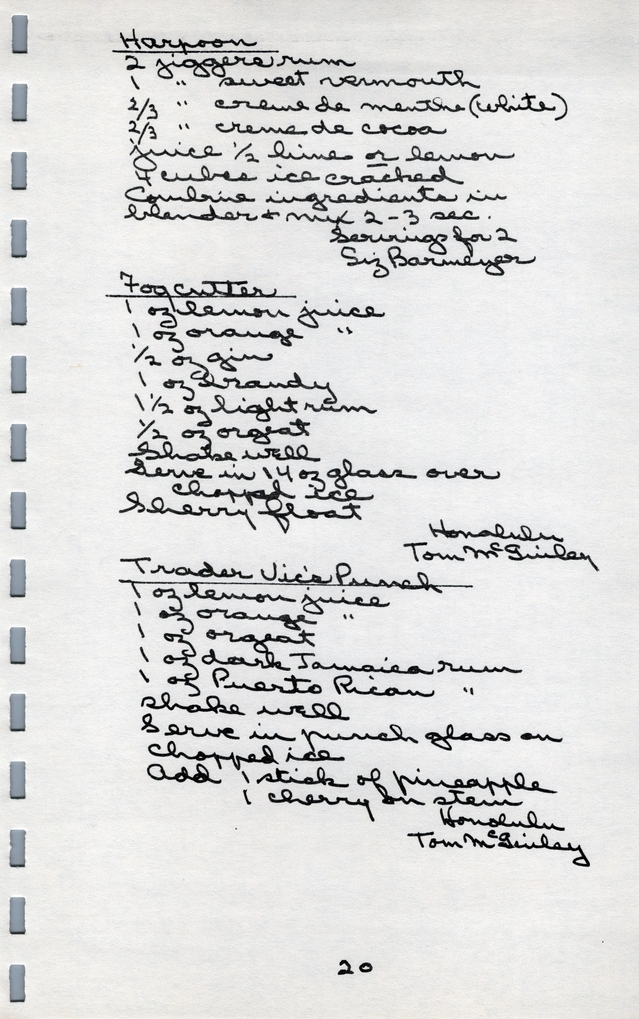 Harpoon
2 jiggers rum
1 " sweet vermouth
2/3 " creme de menthe (white)
2/3 " creme de cocoa
juice 1/2 lime or lemon
4 cubes ice cracked
Combine ingredients in
blender + mix 2-3 sec.
Servings for 2
Siz Barmeyer
Fogcutter
1 oz lemon juice
1 oz orange "
1/2 oz gin
1 oz brandy
1 1/2 oz light rum
1/2 oz orgeat
Shake well
Serve in 14 oz glass over
chopped ice
Sherry float
Honolulu
Tom McGinley
Trader Vic's Punch
1 oz lemon juice
1 oz orange "
1 oz orgeat
1 oz dark Jamaica rum
1 oz Puerto Rican "
Shake well
Serve in punch glass on
chopped ice
Add 1 stick of pineapple
1 cherry on stem
Honolulu
Tom McGinley
20